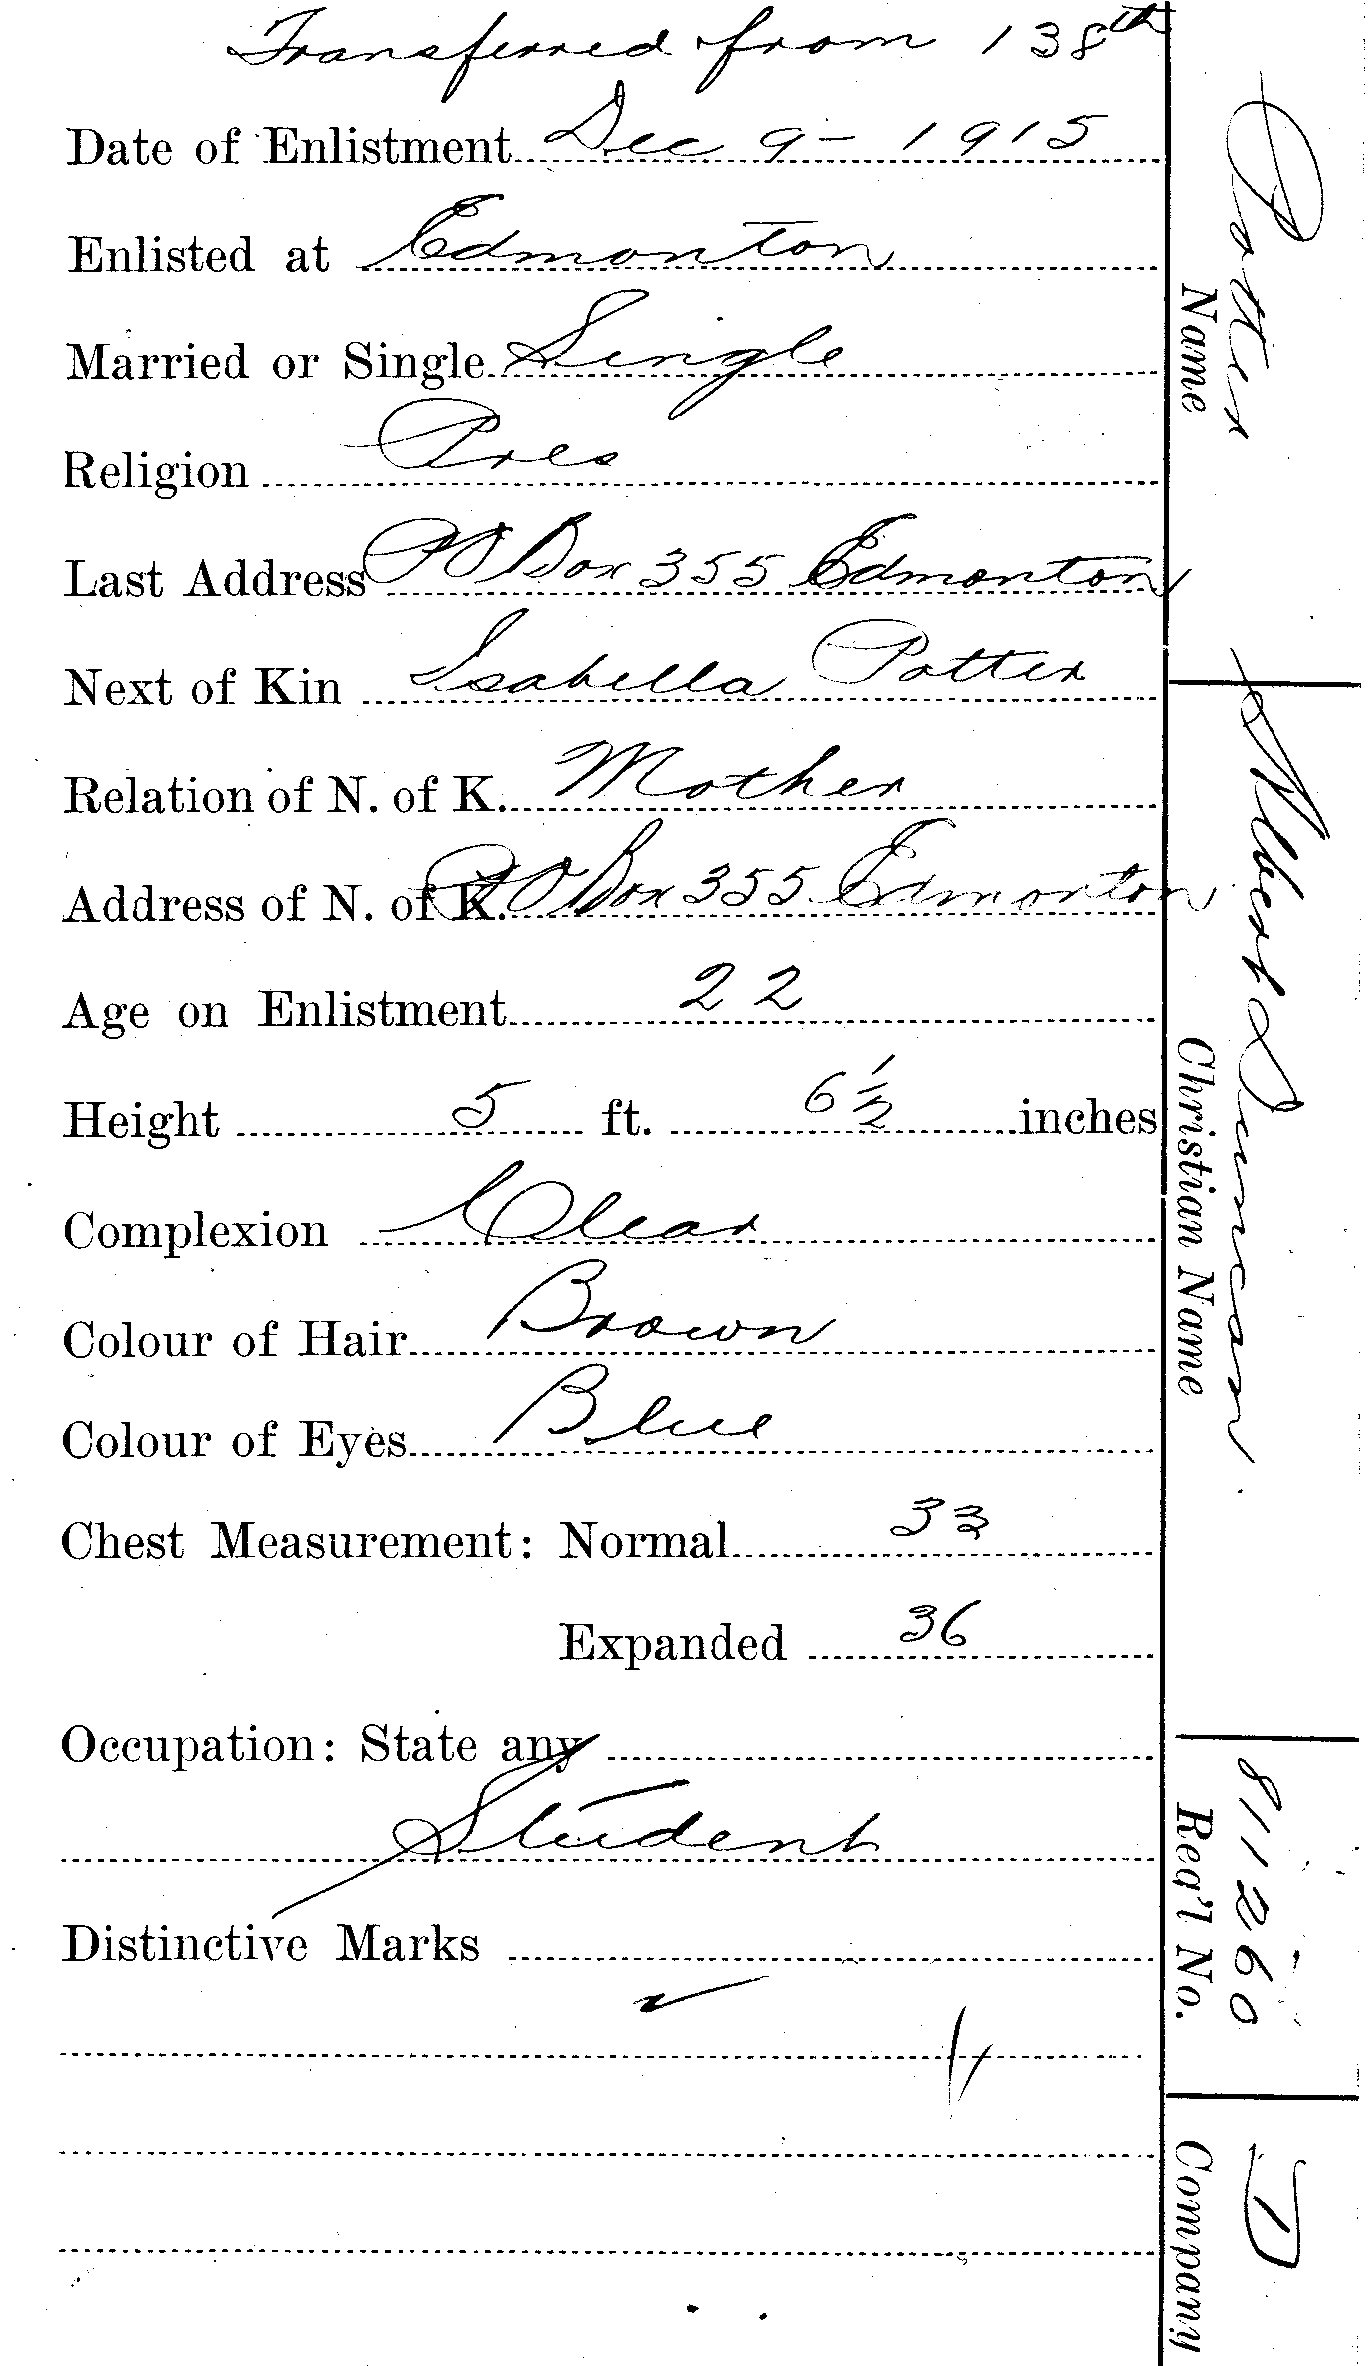 Transferred from 138th
Date of Enlistment Dec 9 - 1915
Enlisted at Edmonton
Married or Single Single
Religion Pres
Last Address PO Box 355 Edmonton
Next of Kin Isabella Potter
Relation of N. of K. Mother
Address of N. of K. PO Box 355 Edmonton
Age on Enlistment 22
Height 5 ft. 6½ inches
Complexion Clear
Colour of Hair Brown
Colour of Eyes Blue
Chest Measurement: Normal 33
Expanded 36
Occupation: State any
Student
Distinctive Marks
Potter
Name
Albert Duncan.
Christian Name
811260
Reg'l No.
D
Company